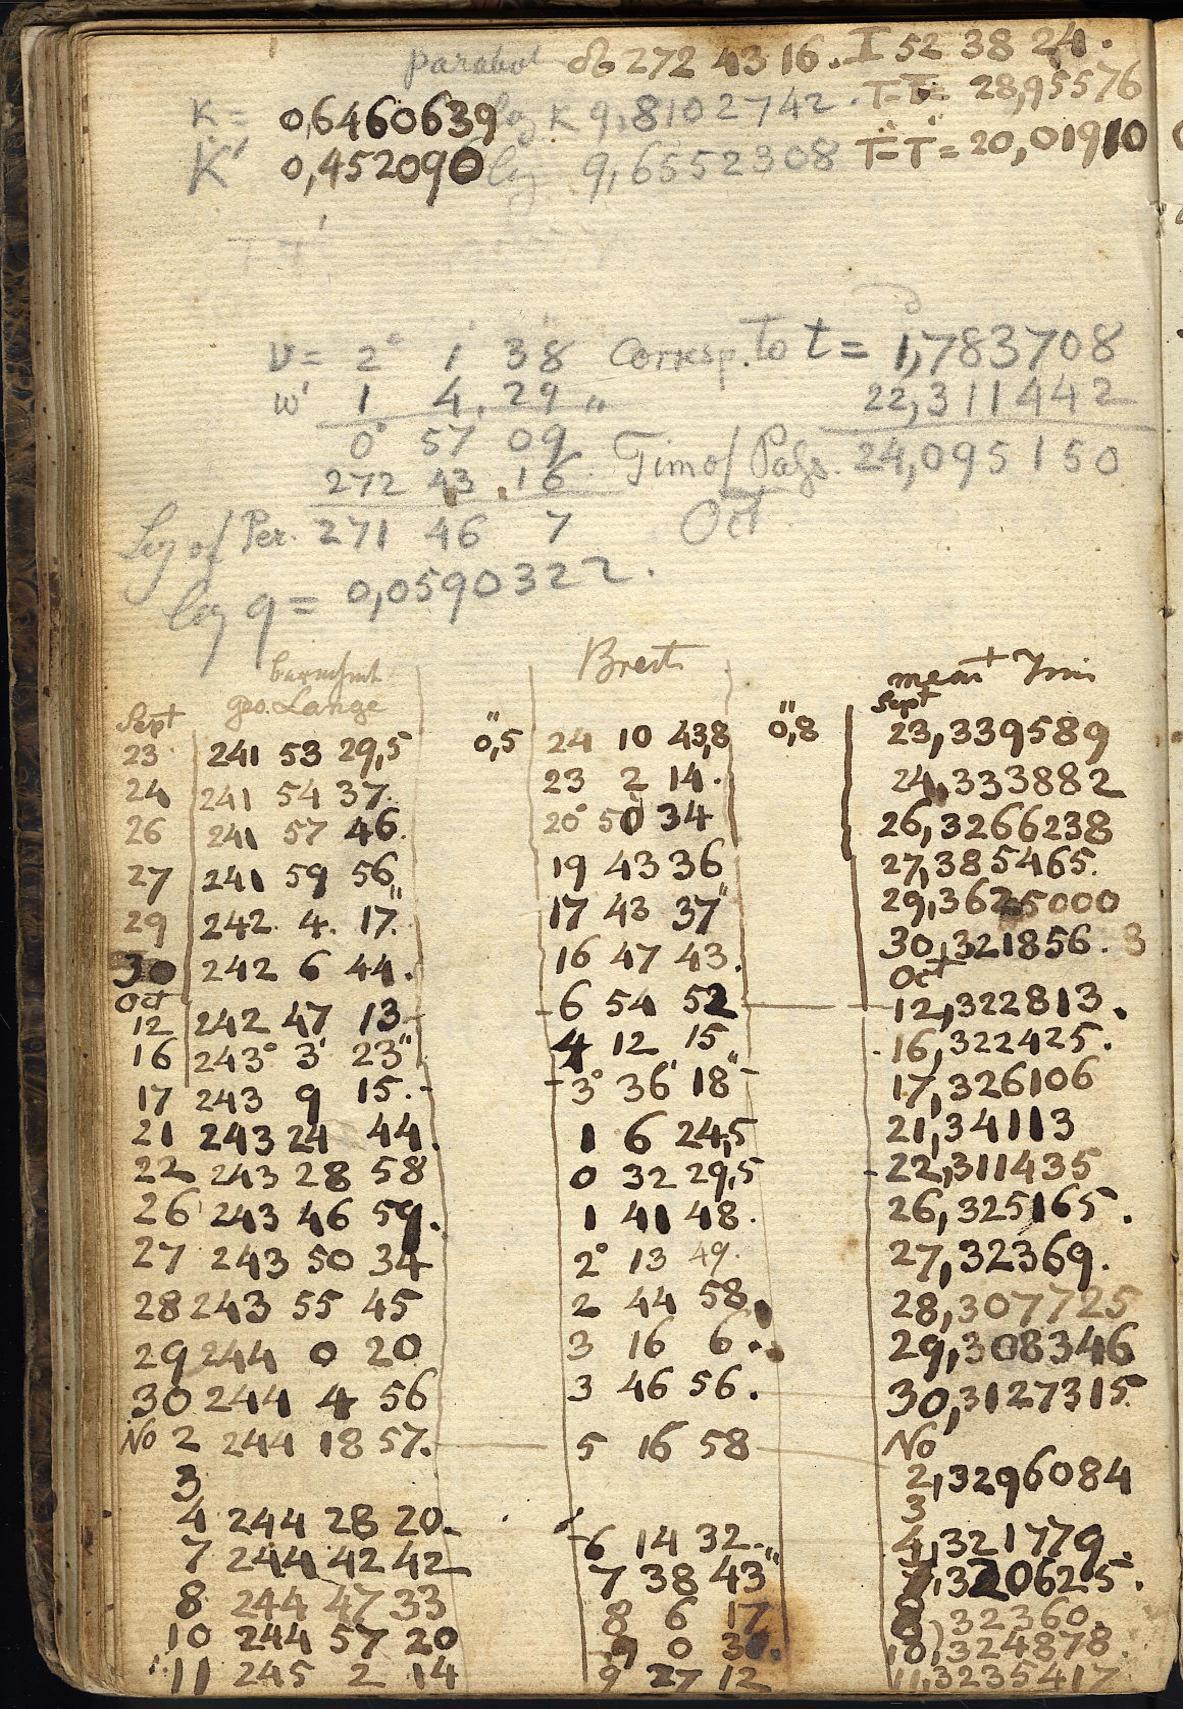 parabol ☊ 272 43 16. I 52 38 24.
K = 0,6460639 log K 9,8102742. T = 28,95576
K' 0,452090 log 9,6552308 T = T" = 20,01910
v = 2° 1' 38" Corresp. to t = 1,783708
w' 1 4 29 22,311442
0° 57 09 Tim of Pass. 24,095150
272 43 16
Log of Per. 271 46 7 Oct
log q = 0,0590322.
Breit mean Tim
geo. Lange
Sept Sept
23 241 53 29,5 0",5 24 10 43,8 0",8 23,339589
24 241 54 37. 23 2 14. 24,333882
26 241 57 46. 20° 50 34 26,3266238
27 241 59 56" 19 43 36 27,385465.
29 242 4 17. 17 43 37" 29,3625000
30 242 6 44. 16 47 43. 30,321856. 3
Oct Oct
12 242 47 13 6 54 52 12,322813.
16 243° 3' 23" 4 12 15 16,322425.
17 243 9 15. 3° 36' 18" 17,326106
21 243 24 44. 1 6 24,5 21,34113
22 243 28 58 0 32 29,5 22,311435
26 243 46 59. 1 41 48. 26,325165.
27 243 50 34 2° 13 49. 27,32369.
28 243 55 45 2 44 58. 28,307725
29 244 0 20 3 16 6. 29,308346
30 244 4 56 3 46 56. 30,3127315
No 2 244 18 57. 5 16 58 No
2,3296084
3 3
4 244 28 20. 6 14 32. 4,321779.
7 244 42 42 7 38 43" 7,320625.
8 244 47 33 8 6 17 8,32360.
10 244 57 20 9 0 30. 10,324878.
11 245 2 14 9 27 12 11,3235417